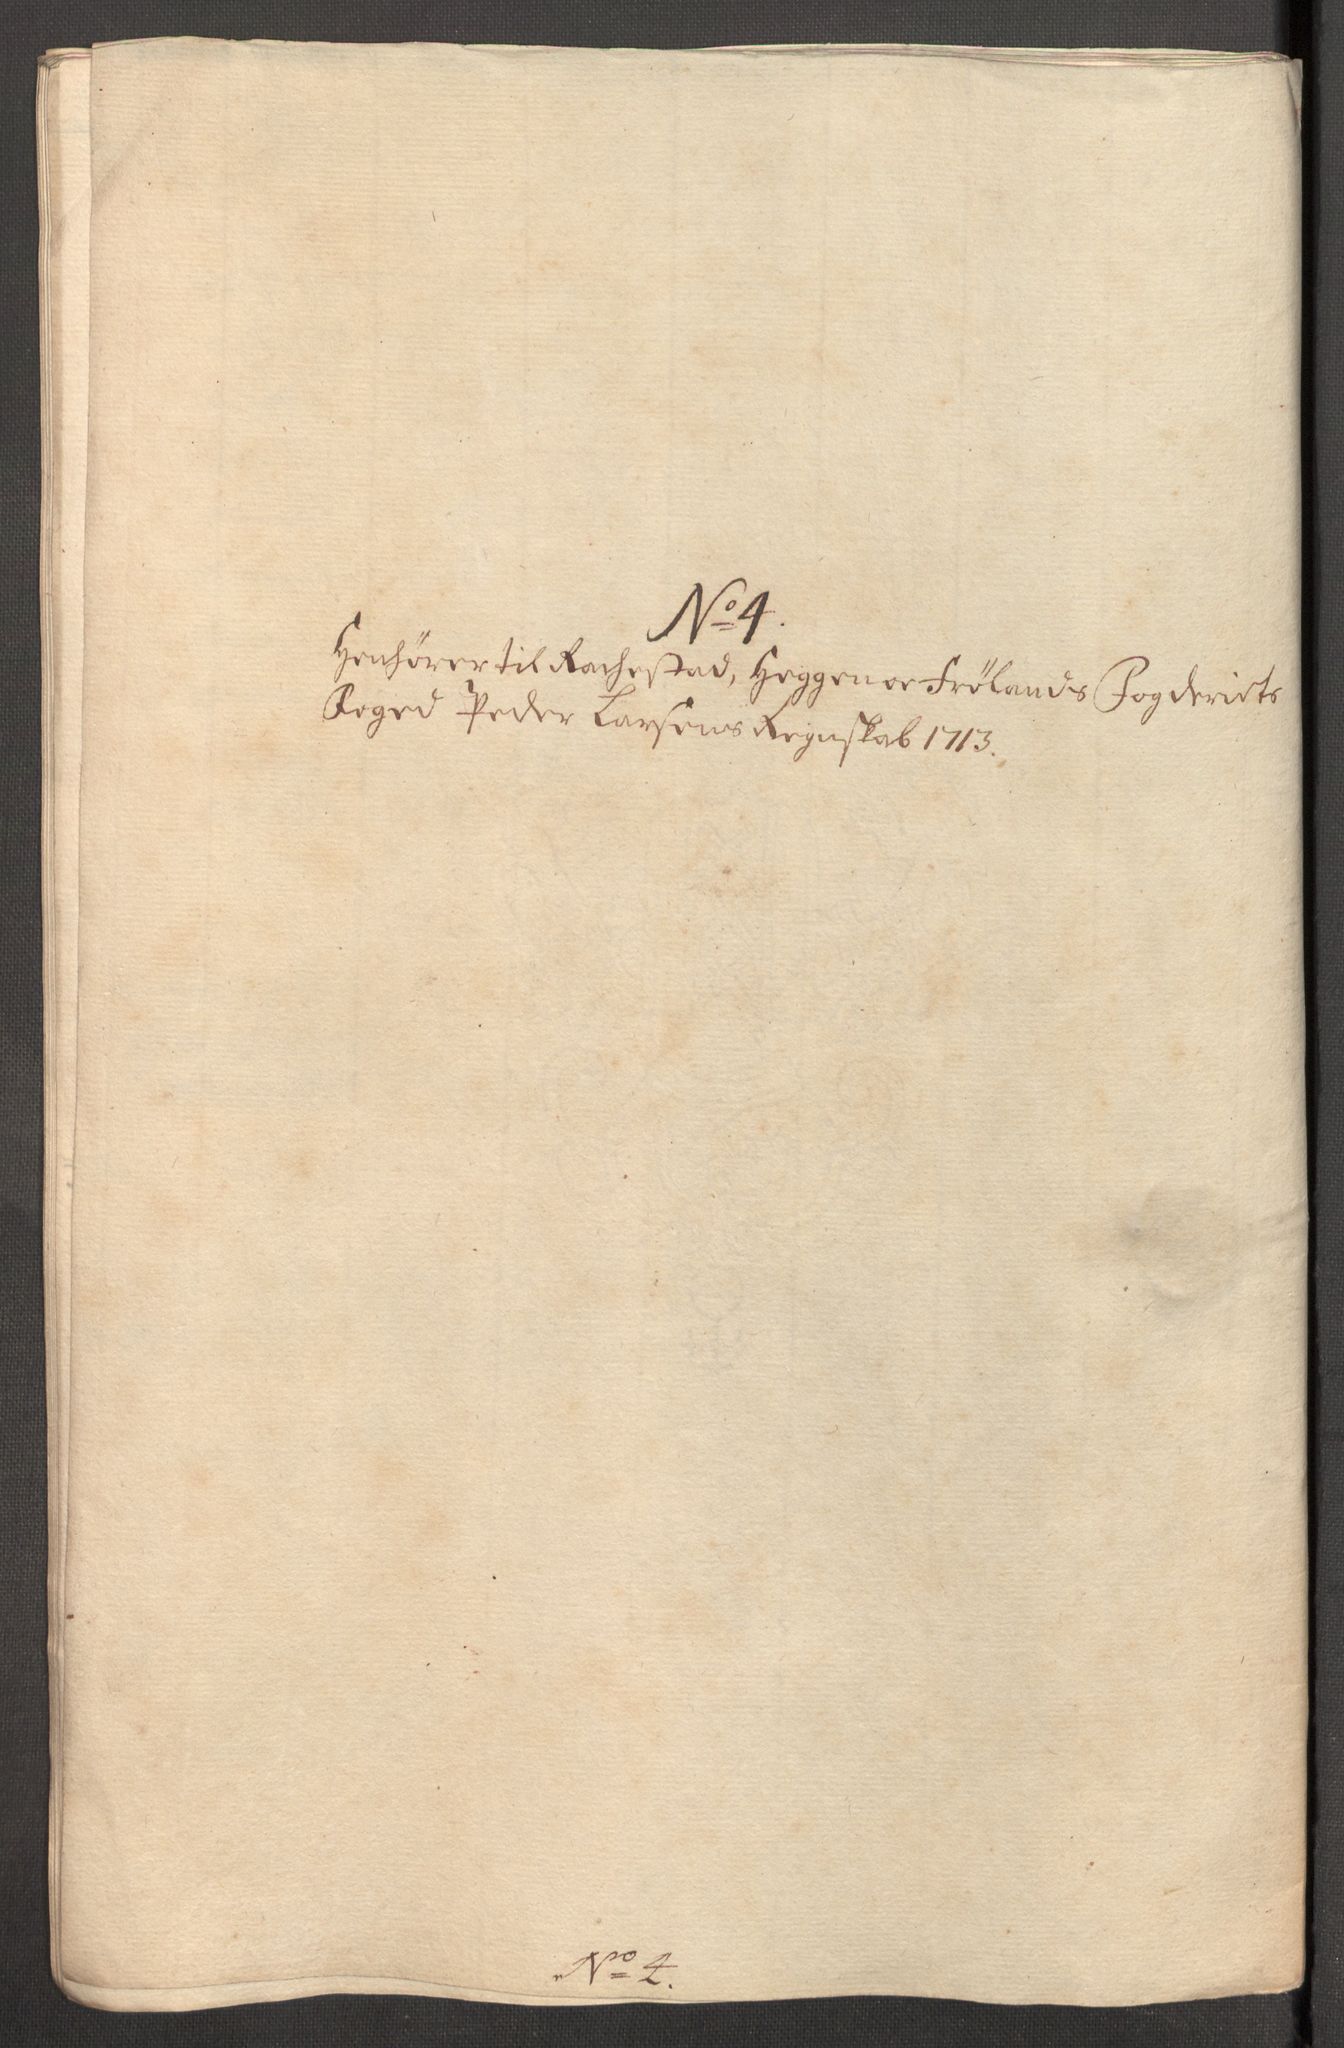 No 4.
Henhører til Rachestad, Heggen oc Frølands Fogderiets
Foged Peder Larsens Regnskab 1713.
No 4.